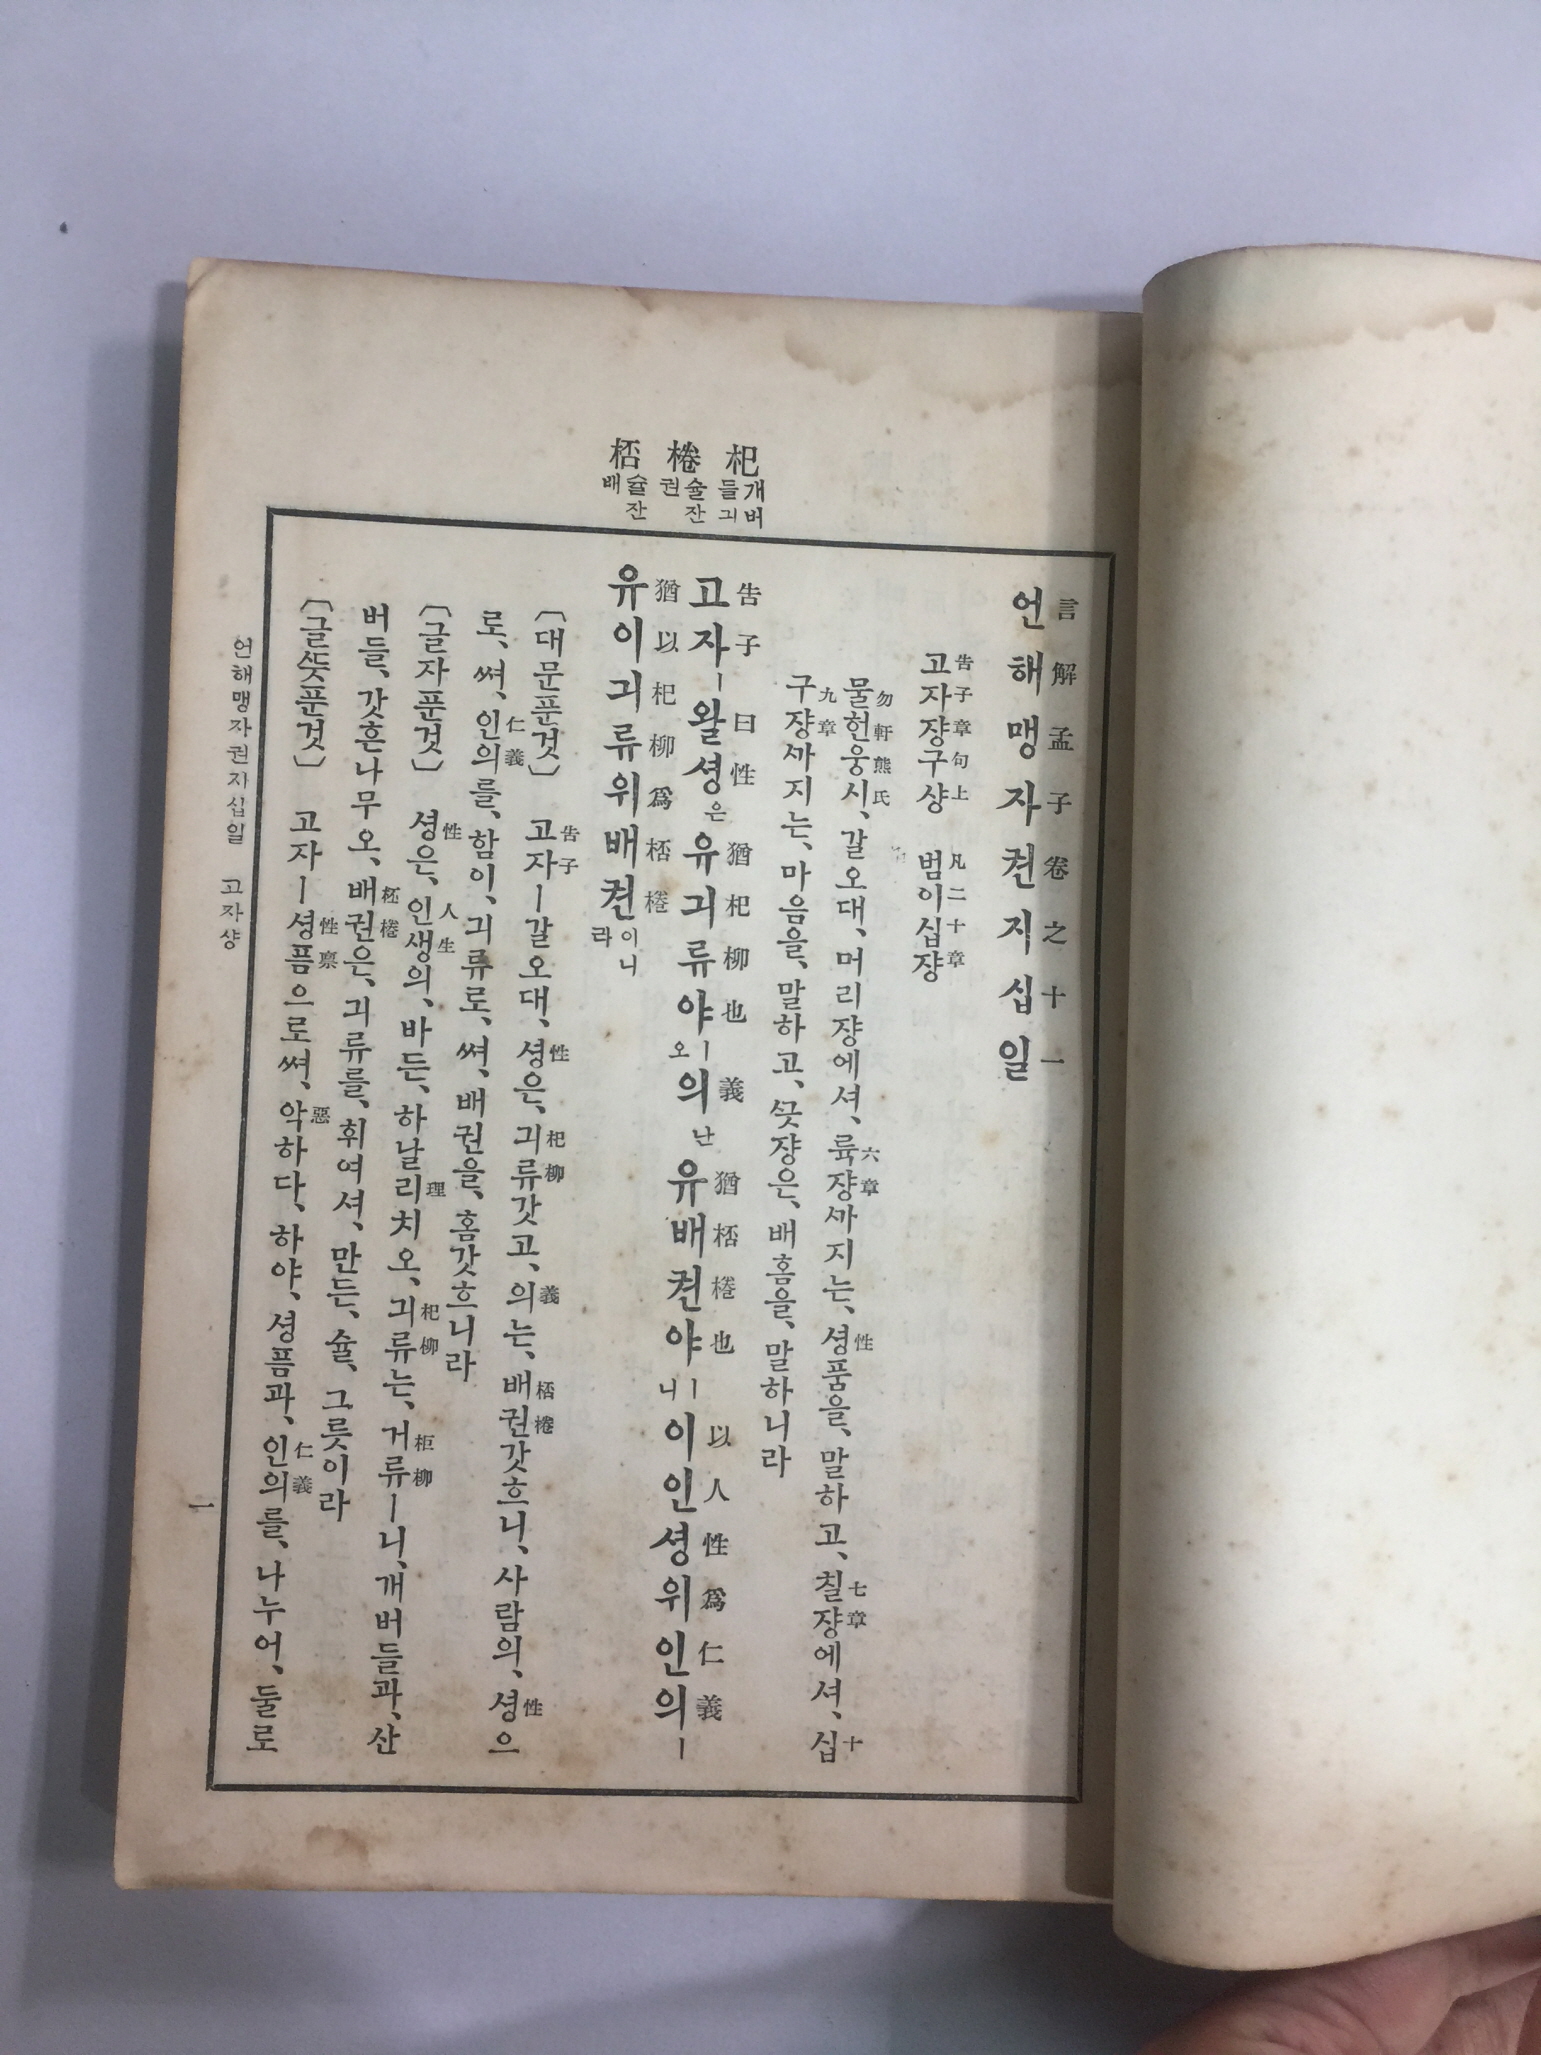 杞 개버들긔
棬 술잔권
桮 술잔배
언해맹자권지십일
言解孟子卷之十一
고자쟝구샹 범이십쟝
告子章句上 凡二十章
물헌웅시、갈오대、머리쟝에셔、륙쟝ᄭᅡ지는、셩품을、말하고、칠쟝에셔、십
勿軒熊氏 六章 性 七章 十
구쟝ᄭᅡ지는、마음을、말하고、ᄭᅳᆺ쟝은、배홈을、말하니라
九章
고자ㅣ왈셩은유긔류야ㅣ오의난유배권야ㅣ니이인셩위인의ㅣ
告子曰性猶杞柳也義猶桮棬也以人性爲仁義
유이긔류위배권이니라
猶以杞柳爲桮棬
〔대문푼것〕 고자ㅣ갈오대、셩은、긔류갓고、의는、배권갓흐니、사람의、셩으
告子 性 杞柳 義 桮棬 性
로、쎠、인의를、함이、긔류로、쎠、배권을、홈갓흐니라
仁義
〔글자푼것〕 셩은、인생의、바든、하날리치오、긔류는、거류ㅣ니、개버들과、산
性 人生 理 杞柳 柜柳
버들、갓흔나무오、배권은、긔류를、휘여셔、만든、슐、그릇이라
桮棬
〔글ᄯᅳᆺ푼것〕 고자ㅣ셩픔으로쎠、악하다、하야、셩픔과、인의를、나누어、둘로
性稟 惡 仁義
언해맹자권지십일 고자샹
一